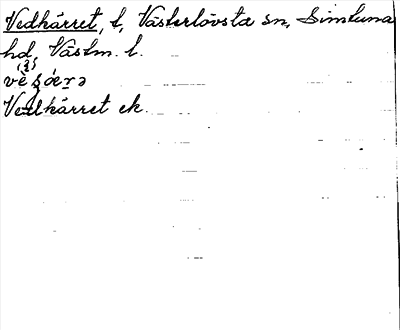 Vedkärret, t, Västerlövsta sn, Simtuna
hd, Västm. l.
Vedkärret ek.